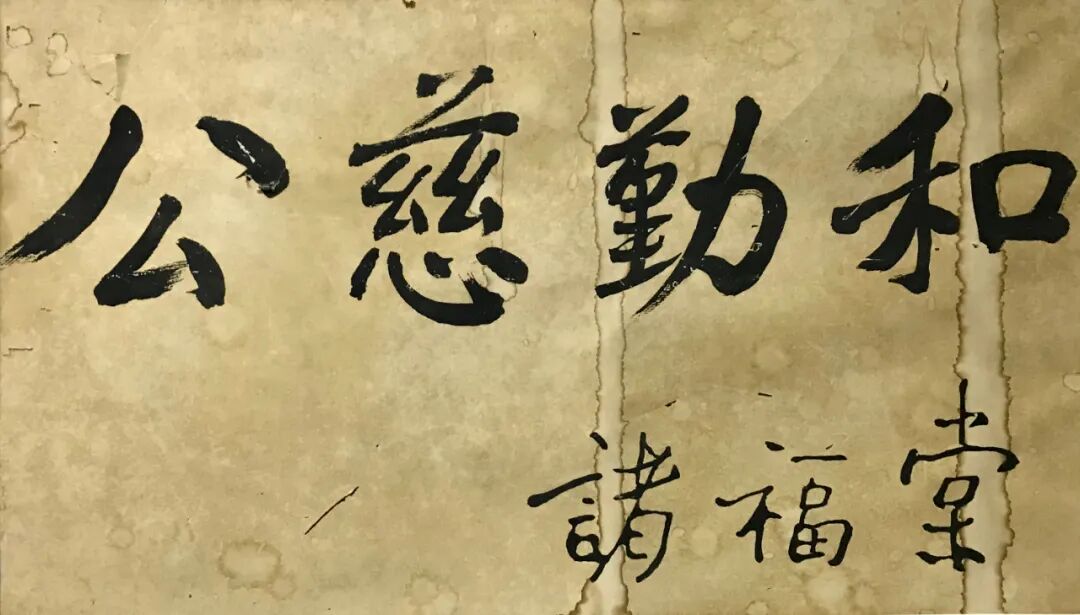 公慈勤和
諸福棠